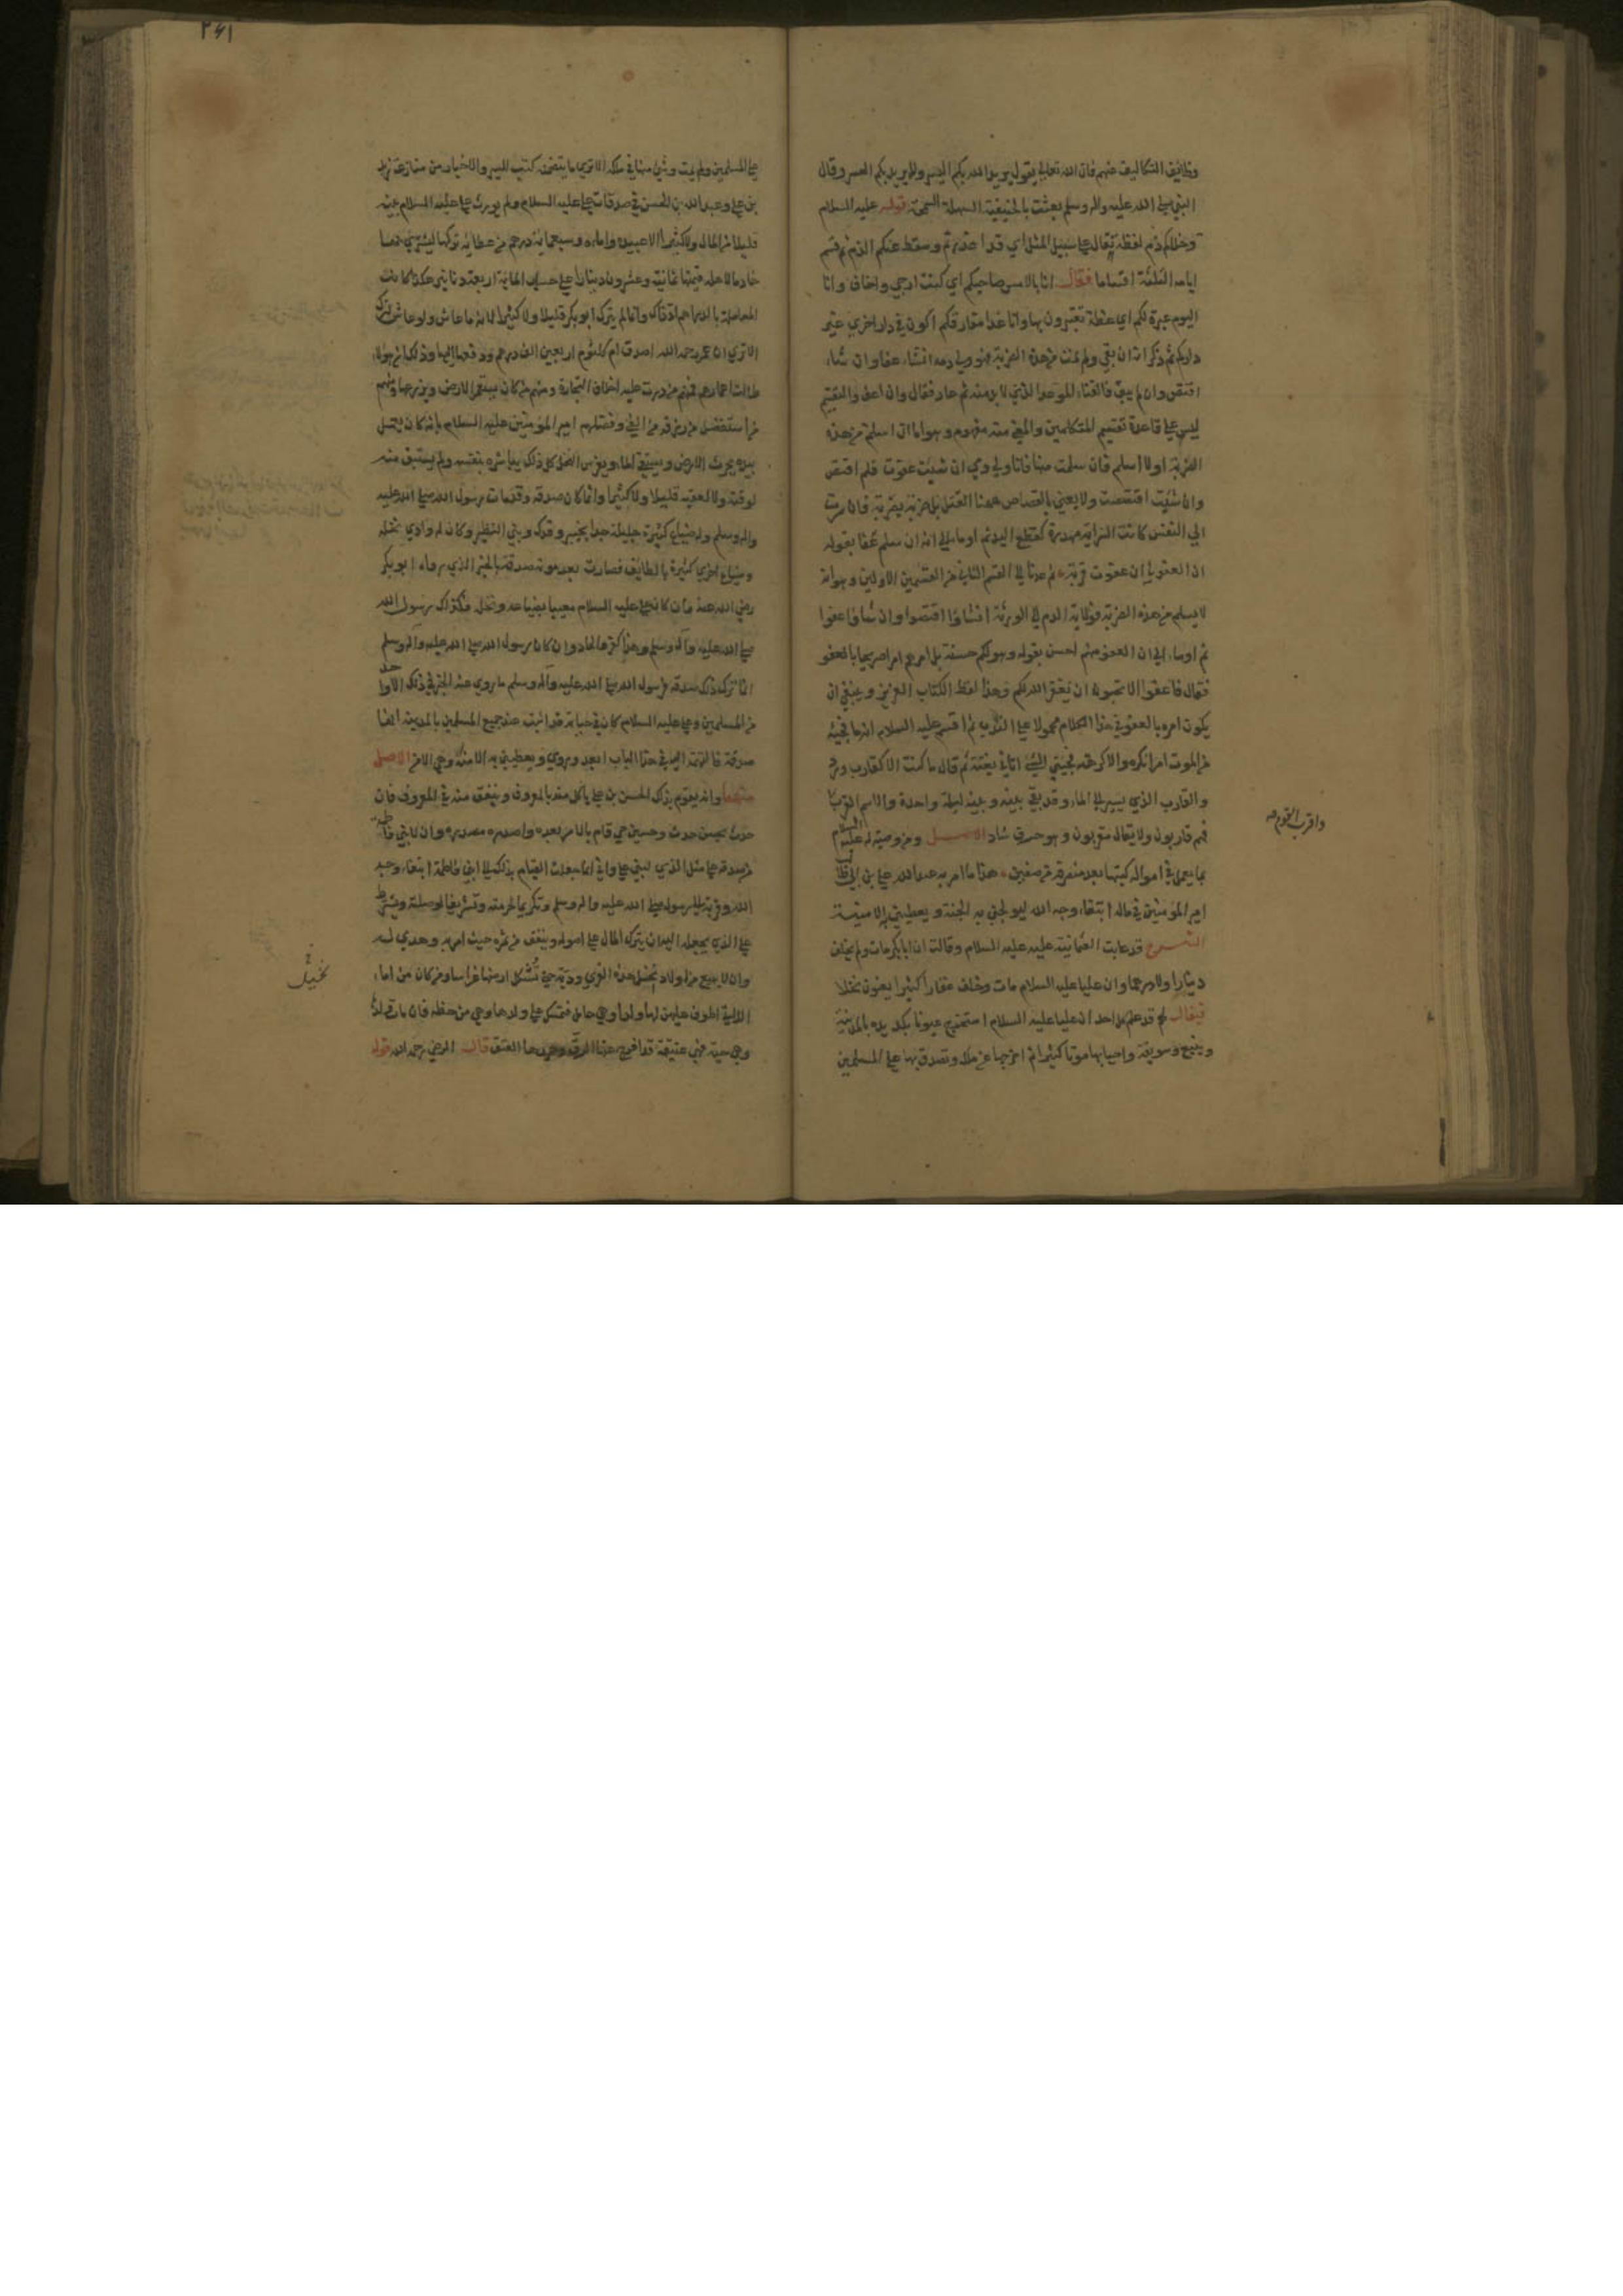 وظائف التكاليف عنهم فان الله تعالى يقول يريد الله بكم اليسر ولا يريد بكم العسر وقال
النبي صلى الله عليه واله وسلم بعثت بالحنيفية السهلة السمحة قوله عليه السلام
وخلاكم ذم لفظة تقال على سبيل المثل اي قد اعذرتم وسقط عنكم الذم ثم قسم
ايامه الثلثة اقساما فقال انا بالامس صاحبكم اي كنت ارجى واخاف وانا
اليوم عبرة لكم اي عظة تعتبرون بها وانا غدا مفارقكم اكون في دار اخرى غير
داركم ثم ذكر انه ان بقي ولم يمت من هذه الضربة فهو ولي دمه ان شاء عفا وان شاء
اقتص وان لم يبق فالفناء الموعد الذي لا بد منه ثم عاد فقال وان اعف والتقسيم
ليس على قاعدة تقسيم المتكلمين والمعنى منه مفهوم وهو اما ان اسلم من هذه
الضربة اولا اسلم فان سلمت منها فانا ولي دمي ان شئت عفوت فلم اقتص
وان شئت اقتصصت ولا يعني بالقصاص ههنا القتل بل ضربة بضربة فان سرت
الى النفس كانت السراية مهدرة كقطع اليد ثم اوما الى انه ان سلم عفا بقوله
ان العفو لي ان عفوت قربة ثم عدنا الى القسم الثاني من القسمين الاولين وهو انه
لا يسلم من هذه الضربة فولاية الدم الى الورثة ان شاؤا اقتصوا وان شاؤا عفوا
ثم اوماء الى ان العفو منهم احسن بقوله وهو لكم حسنة بل امرهم امرا صريحا بالعفو
فقال فاعفوا الا تحبون ان يغفر الله لكم وهذا لفظ الكتاب العزيز وينبغي ان
يكون امره بالعفو في هذا الكلام محمولا على الندب ثم اقسم عليه السلام انه ما فجئه
من الموت امر انكره ولا كرهه فجئني الشئ اتاني بغتة ثم قال ما كنت الا كقارب ورد
والقارب الذي يسير الى الماء وقد بقي بينه وبينه ليلة واحدة والاسم القرب
فهم قاربون ولا يقال مقربون وهو حرف شاذ الاصل ومن وصية له عليه السلام
بما يعمل في امواله كتبها بعد منصرفه من صفين هذا ما امر به عبد الله علي بن ابي طالب
امير المؤمنين في ماله ابتغاء وجه الله ليولجني به الجنة ويعطيني الامنية
الشرح قد عابت العثمانية عليه عليه السلام وقالت ان ابا بكر مات ولم يخلف
دينارا ولا درهما وان عليا عليه السلام مات وخلف عقارا كثيرا يعنون نخلا
فيقال لهم قد علم كل احد ان عليا عليه السلام استخرج عيونا بكد يده بالمدينة
وينبع وسويقة واحيا بها مواتا كثيرا ثم اخرجها عن ملكه وتصدق بها على المسلمين
واقرب القوم
٢٤١
على المسلمين ولم يمت وشئ منها في ملكه الا ترى ما يتضمنه كتب السير والاخبار من منازعة زيد
بن علي وعبد الله بن الحسن في صدقات علي عليه السلام ولم يورث علي عليه السلام بنيه
قليلا من المال ولا كثيرا الا عبيده واماءه وسبعماية درهم من عطائه تركها ليشتري بها
خادما لاهله قيمتها ثمانية وعشرون دينارا على حسب الماية اربعة دنانير وهكذا كانت
المعاملة بالدراهم اذ ذاك وانما لم يترك ابو بكر قليلا ولا كثيرا لانه ما عاش ولو عاش لترك
الا ترى ان عمر رحمه الله اصدق ام كلثوم اربعين الف درهم ودفعها اليها وذلك لان هؤلاء
طالت اعمارهم فمنهم من درت عليه اخلاف التجارة ومنهم من كان يستعمر الارض ويزرعها ومنهم
من استفضل من رزقه من الفئ وفضلهم امير المؤمنين عليه السلام بانه كان يعمل
بيده يحرث الارض ويستقي الماء ويغرس النخل كل ذلك يباشره بنفسه ولم يستبق منه
لوقته ولا لعقبه قليلا ولا كثيرا وانما كان صدقة وقد مات رسول الله صلى الله عليه
واله وسلم وله ضياع كثيرة جليلة جدا بخيبر وفدك وبني النضير وكان له وادي نخلة
وضياع اخرى كثيرة بالطايف فصارت بعد موته صدقة بالخبر الذي رواه ابو بكر
رضي الله عنه فان كان علي عليه السلام معيبا بضياعه ونخله فكذلك رسول الله
صلى الله عليه وآله وسلم وهذا كفر والحاد وان كان رسول الله صلى الله عليه وآله وسلم
انما ترك ذلك صدقة فرسول الله صلى الله عليه وآله وسلم ما روى عنه الخبر في ذلك الا واحد
من المسلمين وعلي عليه السلام كان في حياته قد اثبت عند جميع المسلمين بالمدينة انها
صدقة فالتهمة اليه في هذا الباب ابعد وروي ويعطيني به الامنة وهي الامن الاصل
منها وانه يقوم بذلك الحسن بن علي ياكل منه بالمعروف وينفق منه في المعروف فان
حدث بحسن حدث وحسين حي قام بالامر بعده واصدره مصدره وان لابني فاطمة
من صدقة علي مثل الذي لبني علي واني انما جعلت القيام بذلك الى ابني فاطمة ابتغاء وجه
الله وقربة الى رسوله صلى الله عليه واله وسلم وتكريما لحرمته وتشريفا لوصلته ويشترط
على الذي يجعله اليه ان يترك المال على اصوله وينفق من ثمره حيث امر به وهدي له
وان لا يبيع من اولاد نخيل هذه القرى ودية حتى تشكل ارضها غراسا ومن كان من اماء
اللاتي اطوف عليهن لها ولد او هي حامل فتمسك على ولدها وهي من حظه فان مات ولدها
وهي حية فهي عتيقة قد افرج عنها الرق وحررها العتق قال الرضي رحمه الله قوله
نخيل